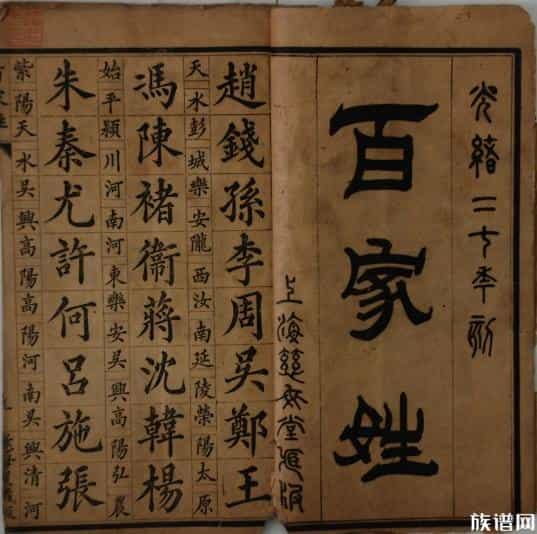 光緒二七年刻
百家姓
上海慈母堂藏版
趙錢孫李周吳鄭王
天水彭城樂安隴西汝南延陵滎陽太原
馮陳褚衛蔣沈韓楊
始平潁川河南河東樂安吳興高陽弘農
朱秦尤許何呂施張
紫陽天水吳興高陽高陽河南吳興清河
百家姓
族谱网